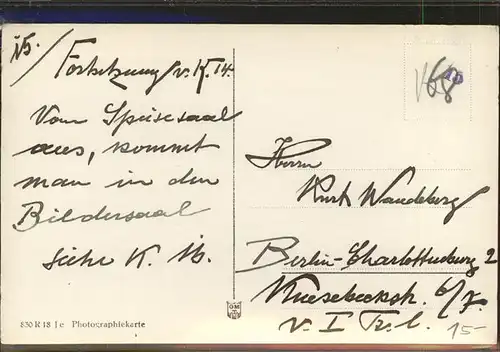 15./ Fortsetzung v. K. 14.
Vom Speisesaal
aus, kommt
man in den
Bildersaal
siehe K. 16.
830 R 18 J c Photographiekarte
OM
Herrn
Kurt Wandeberg
Berlin-Charlottenburg 2
Knesebeckstr. 6/7.
v. I Tr. l.
15-